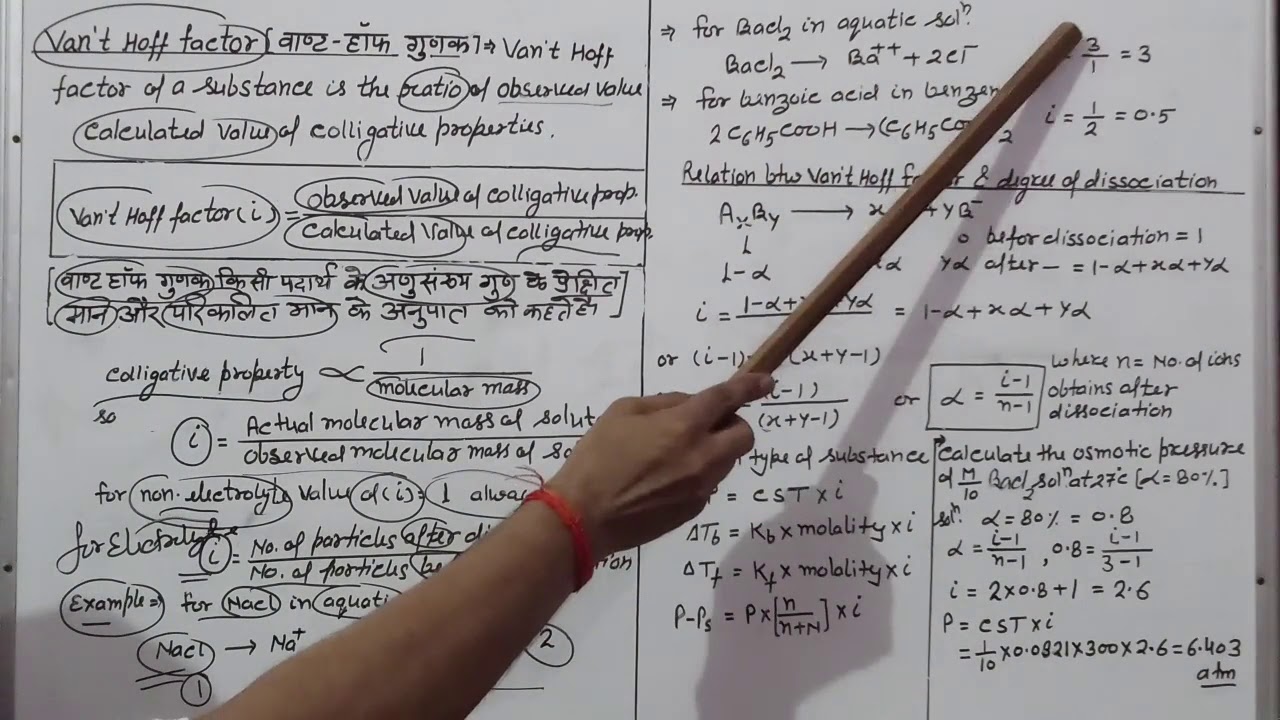 Van't Hoff factor [वाण्ट-हॉफ गुणक] ⇒ Van't Hoff
factor of a substance is the ratio of observed value
calculated value of colligative properties.
Van't Hoff factor(i) = observed value of colligative prop.
calculated value of colligative prop.
[वाण्ट हॉफ गुणक किसी पदार्थ के अणुसंख्य गुण के प्रेक्षित
मान और परिकलित मान के अनुपात को कहते है]
colligative property ∝ 1
molecular mass
so
i = Actual molecular mass of solut
observed molecular mass of
for non-electrolyte value of (i) = 1
for Electrolyte i = No. of particles after
No. of particles
Example ⇒ for Nacl in
Nacl → Na⁺
1
2
⇒ for Bacl₂ in aquatic solⁿ.
Bacl₂ → Ba⁺⁺ + 2cl⁻ = 3/1 = 3
⇒ for benzoic acid in
2C₆H₅COOH → (C₆H₅ 2 i = 1/2 = 0.5
Relation btw Van't Hoff & degree of dissociation
AₓBy → x + yB⁻
1 0 befor dissociation = 1
1-α α yα after — = 1-α+xα+yα
i = 1-α+ yα = 1-α+xα+yα
or (i-1) (x+y-1)
(i-1)
(x+y-1)
or α = i-1/n-1
where n = No. of ions
obtains after
dissociation
type of substance
= CST×i
ΔTb = Kb × molality × i
ΔTf = Kf × molality × i
P-Ps = P×[n/n+N]×i
Calculate the osmotic pressure
of M/10 Bacl₂ solⁿ at 27°c [α=80%]
solⁿ. α = 80% = 0.8
α = i-1/n-1 , 0.8 = i-1/3-1
i = 2×0.8+1 = 2.6
P = CST×i
= 1/10 ×0.0821×300×2.6 = 6.403
atm